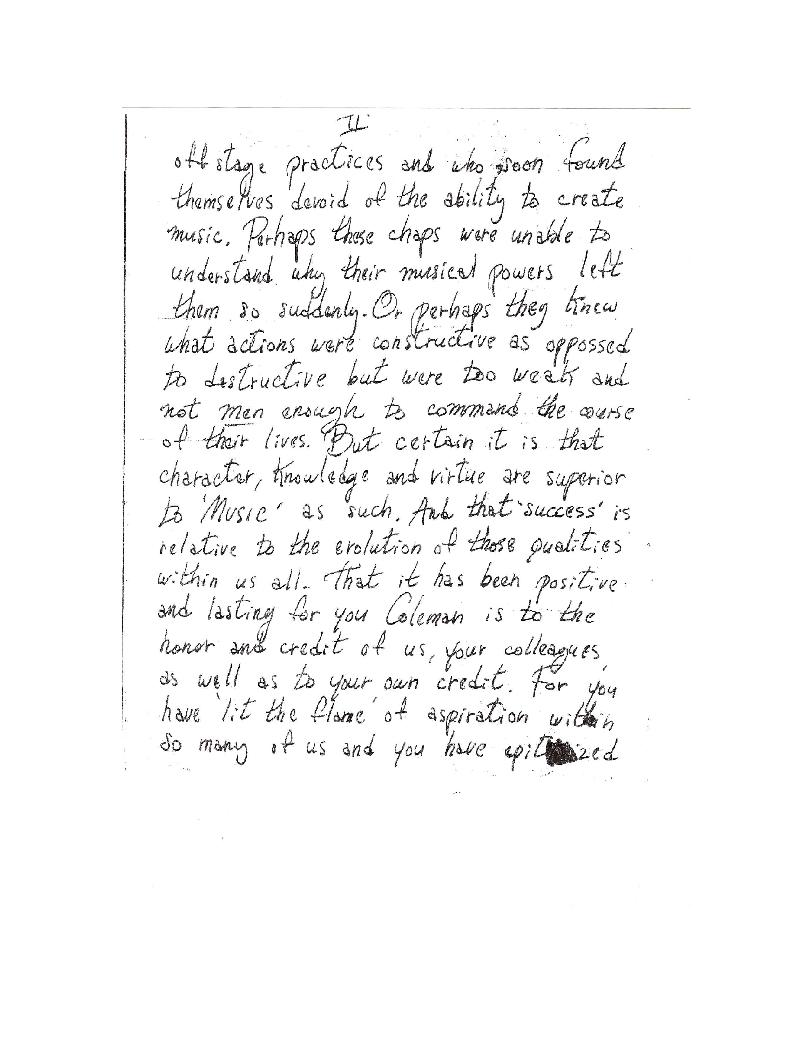 II
off stage practices and who soon found
themselves devoid of the ability to create
music. Perhaps these chaps were unable to
understand why their musical powers left
them so suddenly. Or perhaps they knew
what actions were constructive as oppossed
to destructive but were too weak and
not men enough to command the course
of their lives. But certain it is that
character, knowledge and virtue are superior
to 'Music' as such. And that 'success' is
relative to the evolution of those qualities
within us all. That it has been positive
and lasting for you Coleman is to the
honor and credit of us, your colleagues
as well as to your own credit. For you
have 'lit the flame' of aspiration within
so many of us and you have